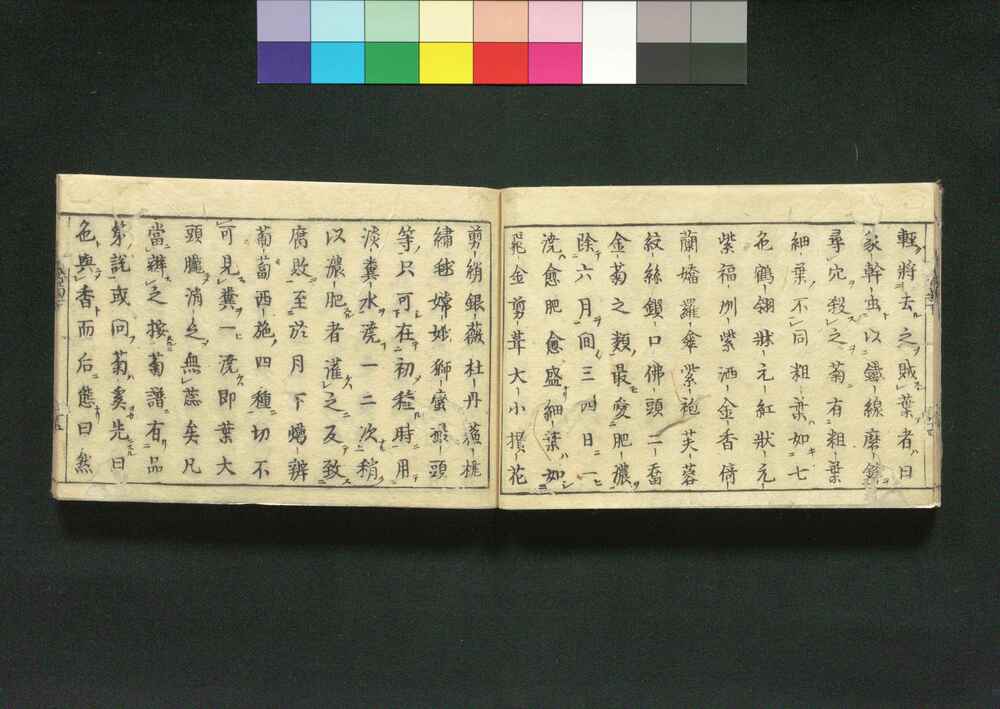 輕將去之賊葉者曰
象幹虫以鐵線磨鋒
尋穴殺之菊有粗葉
細葉不同粗葉如七
色鶴翎狀元紅狀元
紫福州紫洒金香倚
蘭嬌羅傘紫袍芙蓉
紋絲鎖口佛頭二喬
金菊之類最愛肥濃
除六月間三四日一
澆愈肥愈盛細葉如
金剪茸大小撲花
剪綃銀薇杜丹
繡毬嫦娥獅蜜頭
等只可在初種時用
淡糞水澆一二次稍
以濃肥者灌之反致
腐敗至於月下蠟瓣
葡萄西施四種切不
可見糞一澆即葉大
頭朧消之無蕊矣凡
當辨之按菊譜有品
第說或問菊奚先曰
色與香而后態曰然